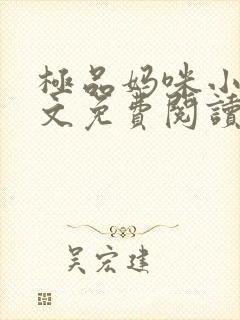 極品妈咪小
文免費閱讀
吴宏建